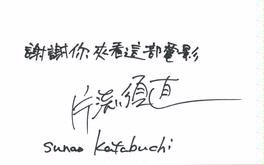 謝謝你來看這部電影
片渕須直
Sunao Katabuchi